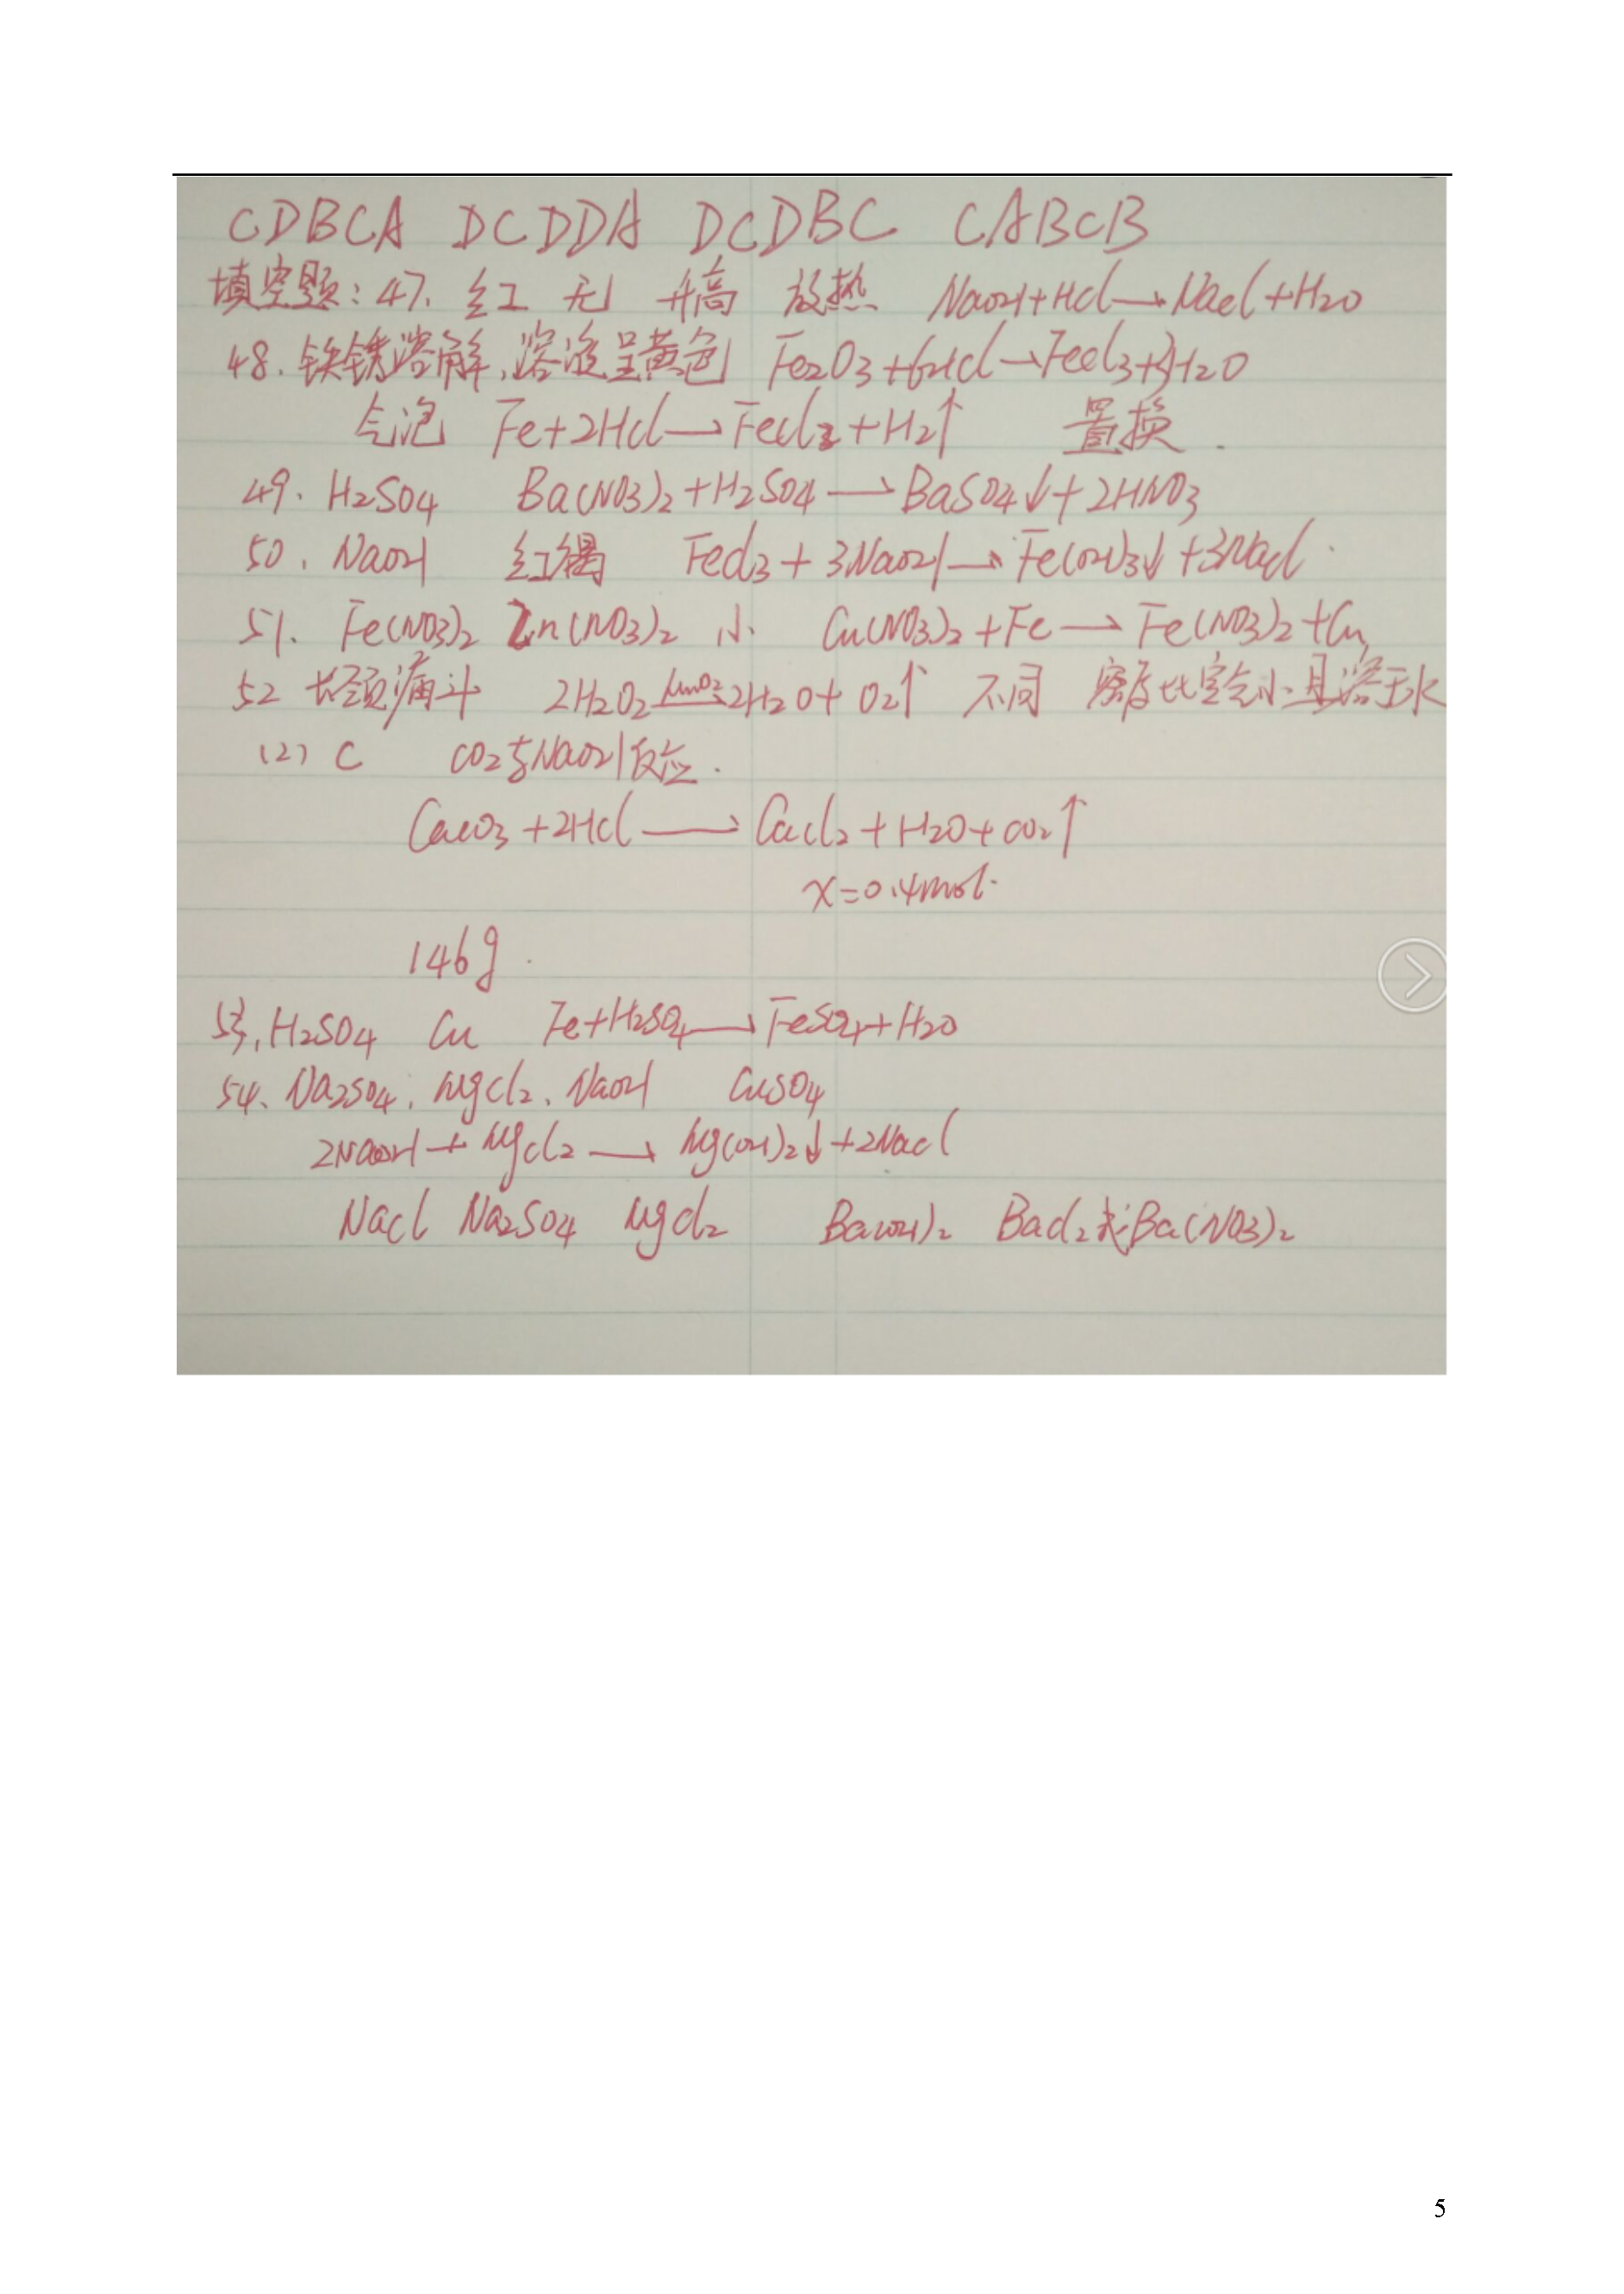 CDBCA DCDDA DCDBC CABCB
填空题：47. 红 无 升高 放热 NaOH+HCl→NaCl+H2O
48. 铁锈溶解，溶液呈黄色 Fe2O3+6HCl→FeCl3+3H2O
气泡 Fe+2HCl→FeCl2+H2↑ 置换.
49. H2SO4 Ba(NO3)2+H2SO4→BaSO4↓+2HNO3
50. NaOH 红褐 FeCl3+3NaOH→Fe(OH)3↓+3NaCl.
51. Fe(NO3)2 Zn(NO3)2 小 Cu(NO3)2+Fe→Fe(NO3)2+Cu
52 长颈漏斗 2H2O2 MnO2 2H2O+O2↑ 不同 密度比空气小且溶于水
(2) C CO2与NaOH反应.
CaCO3+2HCl→CaCl2+H2O+CO2↑
x=0.4mol.
146g.
53. H2SO4 Cu Fe+H2SO4→FeSO4+H2O
54. Na2SO4. MgCl2. NaOH CuSO4
2NaOH+MgCl2→Mg(OH)2↓+2NaCl
NaCl Na2SO4 MgCl2 Ba(OH)2 BaCl2或Ba(NO3)2
5